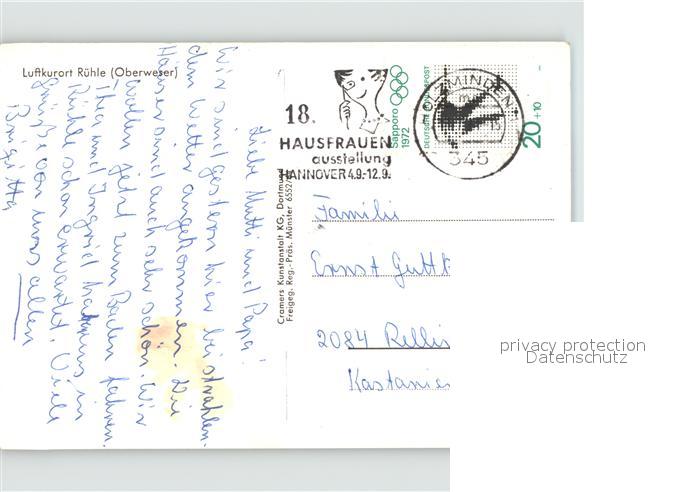 Luftkurort Rühle (Oberweser)
Liebe Mutti und Papa!
Wir sind gestern hier bei strahlen-
dem Wetter angekommen. Die
Häuser sind auch sehr schön. Wir
wollen jetzt zum Baden fahren.
und Ingrid haben uns in
Rühle schon erwartet. Viele
Grüße von uns allen
Brigitta
Cramers Kunstanstalt KG, Dortmund
Freigeg. Reg.-Präs. Münster 6552/
18.
HAUSFRAUEN
ausstellung
HANNOVER 4.9.-12.9.
Sapporo
1972
DEUTSCHE BUNDESPOST
20+10
HOLZMINDEN
345
Familie
Ernst Gutt
2084 Rellin
Kastanie
privacy protection
Datenschutz